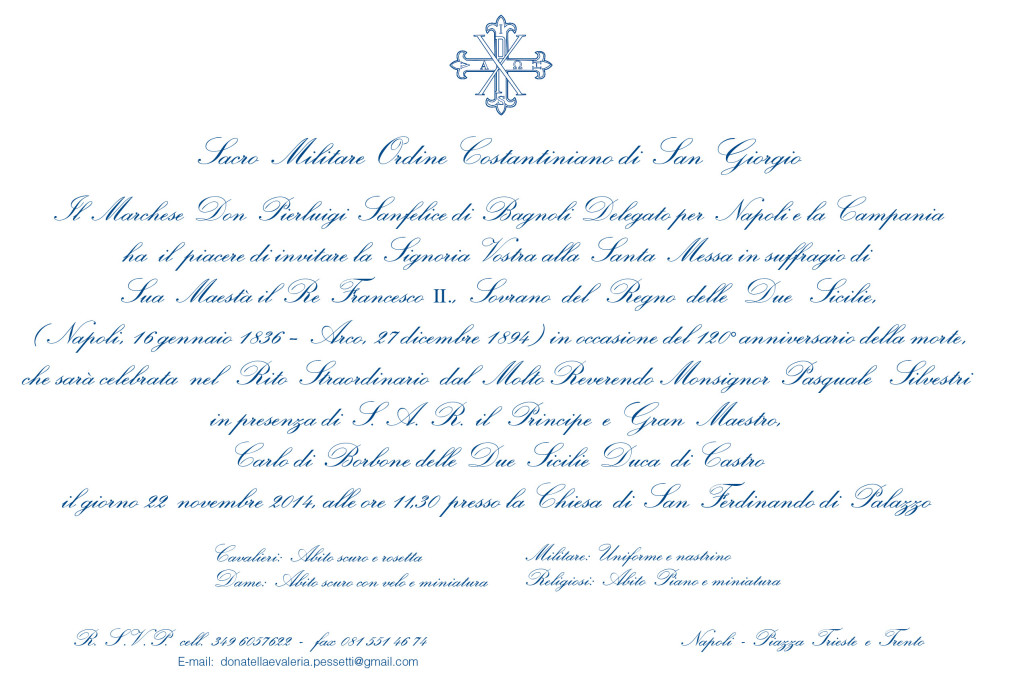 I
V A Ω H
S
Sacro Militare Ordine Costantiniano di San Giorgio
Il Marchese Don Pierluigi Sanfelice di Bagnoli Delegato per Napoli e la Campania
ha il piacere di invitare la Signoria Vostra alla Santa Messa in suffragio di
Sua Maestà il Re Francesco II., Sovrano del Regno delle Due Sicilie,
( Napoli, 16 gennaio 1836 - Arco, 27 dicembre 1894) in occasione del 120° anniversario della morte,
che sarà celebrata nel Rito Straordinario dal Molto Reverendo Monsignor Pasquale Silvestri
in presenza di S. A. R. il Principe e Gran Maestro,
Carlo di Borbone delle Due Sicilie Duca di Castro
il giorno 22 novembre 2014, alle ore 11,30 presso la Chiesa di San Ferdinando di Palazzo
Cavalieri: Abito scuro e rosetta
Dame: Abito scuro con velo e miniatura
Militare: Uniforme e nastrino
Religiosi: Abito Piano e miniatura
R. S.V.P. cell. 349 6057622 - fax 081 551 46 74
E-mail: donatellaevaleria.pessetti@gmail.com
Napoli - Piazza Trieste e Trento